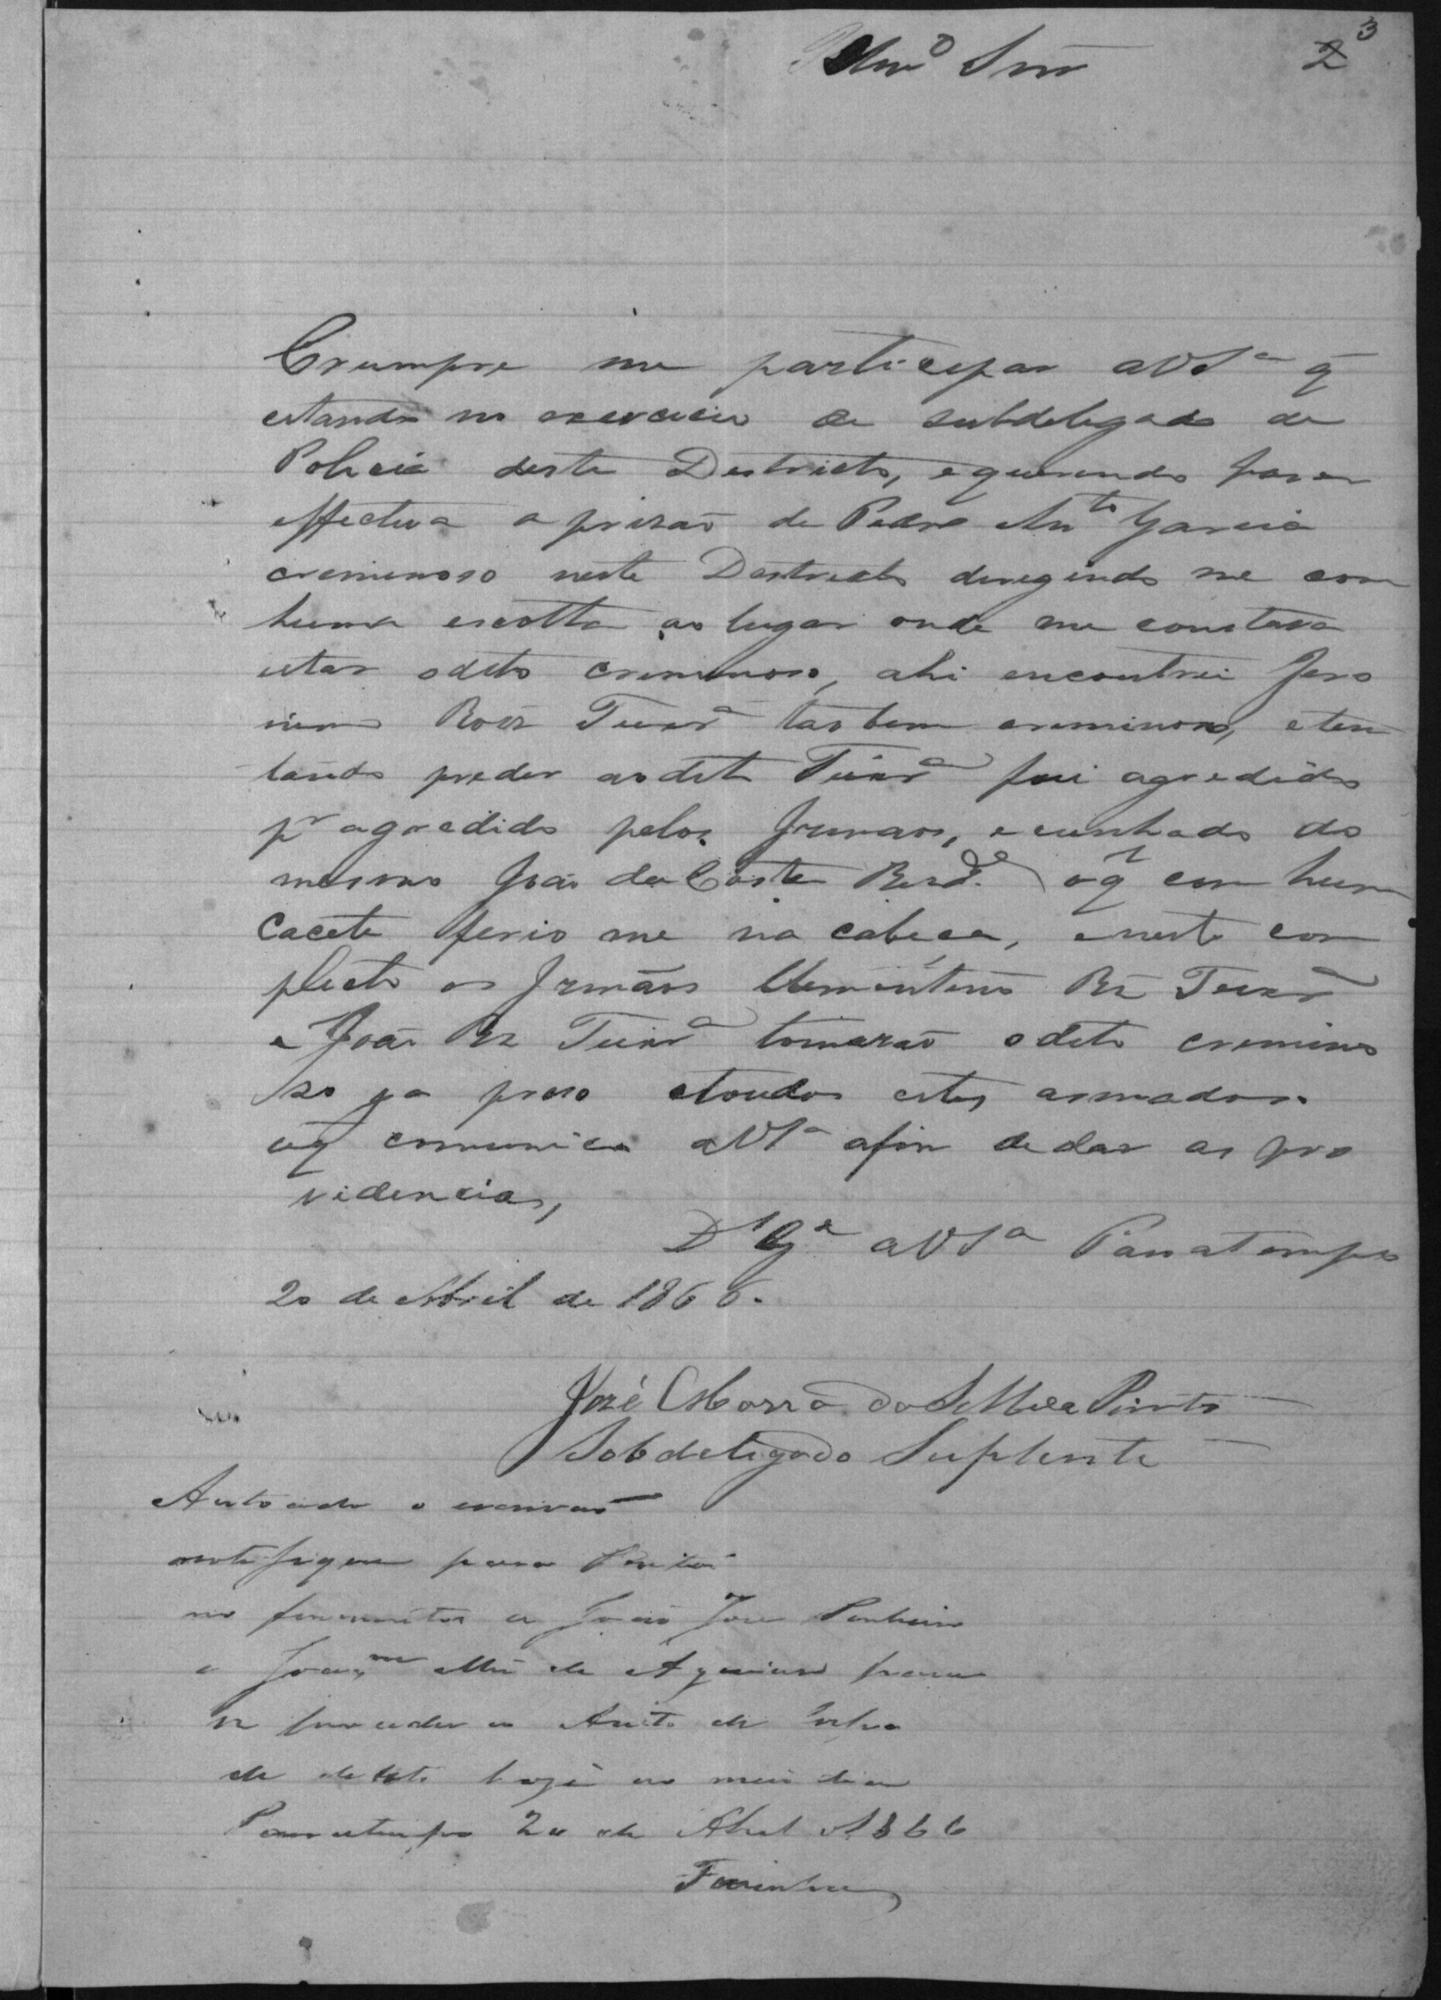 Illmo Snr
2 3
Cumpre me participar a V Sa q
estando no exercicio de subdelegado de
Policia deste Destricto, e querendo fazer
effectiva a prizaõ de Pedro Anto Garcia
creminoso neste Destricto deregindo me com
huma escolta ao lugar onde me constava
estar o dito creminoso, ahi encontrei Jero
nimo Roiz Teixra taobem creminoso, e ten
tando preder ao dito Teixra fui agredido
pr agredido pelos Irmaos, e cunhado do
mesmo João da Costa o q com hum
cacete ferio me na cabeça, e neste com
flicto os Irmãos Clementino Rz Teixra
e João Rz Teixra tomarão o dito cremino
so ja prezo e toudos estes armados.
o q comunico a V Sa afim de dar as pro
videncias,
Ds Ge a V Sa Passatempo
20 de Abril de 1866.
José da Silva Pinto
Sobdelegado Suplente
Autoado o escrivaõ
notifique para Peritos
no ferimentos a João Jose Pinheiro
e Joaqm Mel de Aguiar para
se proceder a Auto de Corpo
de delicto hoje ao meio dia
Passatempo 20 de Abril d 1866